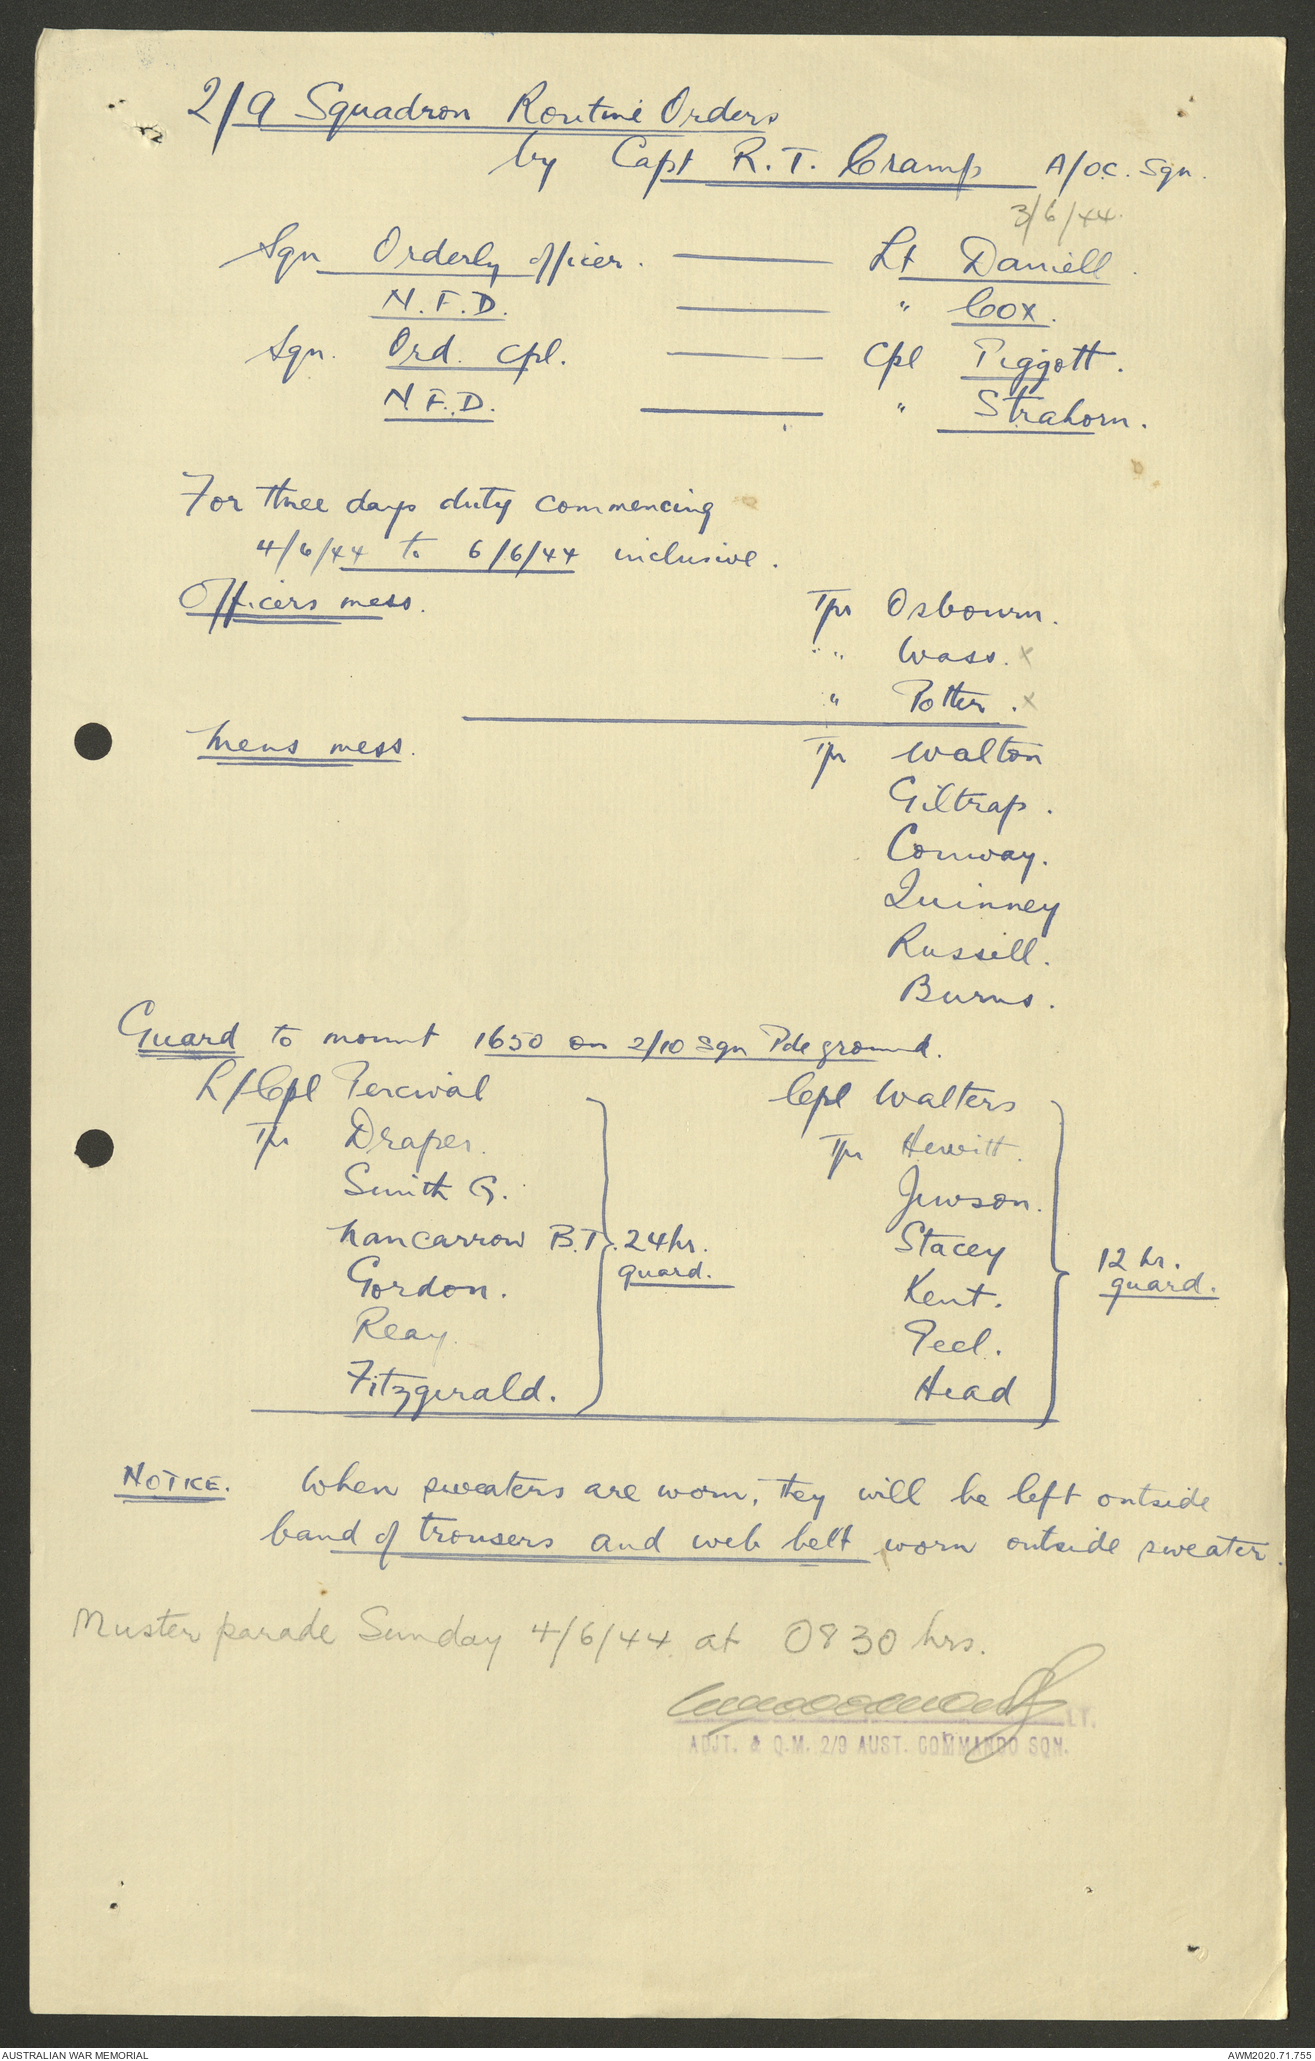 2/9 Squadron Routine Orders
by Capt R. T. Cramp A/OC. Sqn.
3/6/44.
Sqn Orderly officer. —— Lt Daniell.
N.F.D. —— " Cox.
Sqn. Ord. Cpl. —— Cpl Piggott.
N.F.D. —— " Strahorn.
For three days duty commencing
4/6/44 to 6/6/44 inclusive.
Officers mess. Tpr Osbourn.
" " Wass. x
" Potter. x
Mens mess. Tpr Walton
Giltrap.
Conway.
Quinney
Russill.
Burns.
Guard to mount 1650 on 2/10 Sqn Pde ground.
L/Cpl Percival Cpl Walters
Tpr Draper. Tpr Hewitt.
Smith G. Jewson.
Nancarrow B.T. 24hr. Stacey 12 hr.
Gordon. guard. Kent. guard.
Reay. Peel.
Fitzgerald. Head
NOTICE. When sweaters are worn, they will be left outside
band of trousers and web belt worn outside sweater.
Muster parade Sunday 4/6/44 at 0830 hrs.
LT.
ADJT. & Q.M. 2/9 AUST. COMMANDO SQN.
AUSTRALIAN WAR MEMORIAL AWM2020.71.755